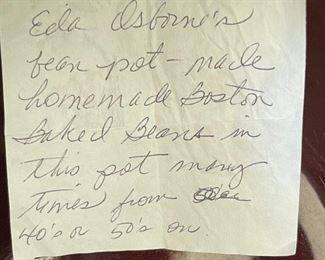 Eda Osborne's
bean pot - made
homemade Boston
Baked Beans in
this pot many
times from
40's or 50's on.